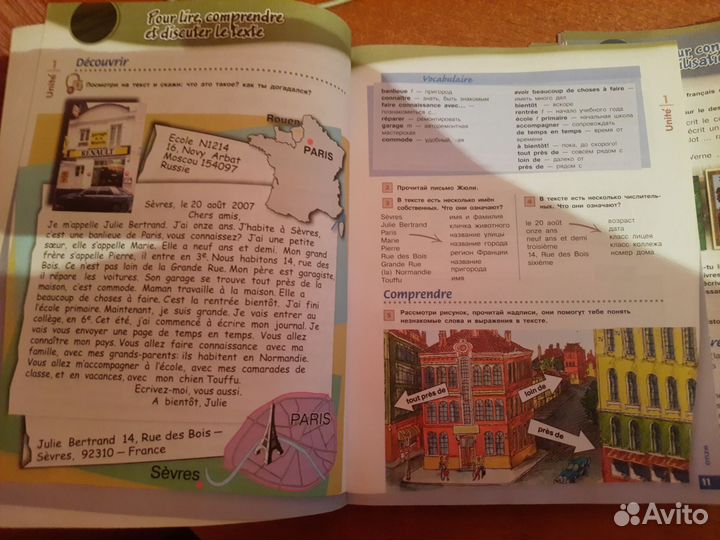 Pour lire, comprendre
et discuter le texte
1
Unité
Découvrir
Посмотри на текст и скажи: что это такое? как ты догадался?
RENAULT
Rouen
PARIS
Ecole N1214
16, Novy Arbat
Moscou 154097
Russie
Sèvres, le 20 août 2007
Chers amis,
Je m'appelle Julie Bertrand. J'ai onze ans. J'habite à Sèvres,
c'est une banlieue de Paris, vous connaissez? J'ai une petite
sœur, elle s'appelle Marie. Elle a neuf ans et demi. Mon grand
frère s'appelle Pierre, il entre en 3e. Nous habitons 14, rue des
Bois. Ce n'est pas loin de la Grande Rue. Mon père est garagiste,
il répare les voitures. Son garage se trouve tout près de la
maison, c'est commode. Maman travaille à la maison. Elle a
beaucoup de choses à faire. C'est la rentrée bientôt. J'ai fini
l'école primaire. Maintenant, je suis grande. Je vais entrer au
collège, en 6e. Cet été, j'ai commencé à écrire mon journal. Je
vais vous envoyer une page de temps en temps. Vous allez
connaître mon pays. Vous allez faire connaissance avec ma
famille, avec mes grands-parents: ils habitent en Normandie.
Vous allez m'accompagner à l'école, avec mes camarades de
classe, et en vacances, avec mon chien Touffu.
Ecrivez-moi, vous aussi.
A bientôt, Julie
Julie Bertrand 14, Rue des Bois –
Sèvres, 92310 – France
PARIS
Sèvres
Vocabulaire
banlieue f — пригород
connaître — знать, быть знакомым
faire connaissance avec... —
познакомиться с...
réparer — ремонтировать
garage m — авторемонтная
мастерская
commode — удобный, -ая
avoir beaucoup de choses à faire —
иметь много дел
bientôt — вскоре
rentrée f — начало учебного года
école f primaire — начальная школа
accompagner — сопровождать
de temps en temps — время от
времени
à bientôt! — пока, до скорого!
tout près de — совсем рядом с
loin de — далеко от
près de — рядом с
1
Unité
2 Прочитай письмо Жюли.
3 В тексте есть несколько имён
собственных. Что они означают?
Sèvres имя и фамилия
Julie Bertrand кличка животного
Paris название улицы
Marie название города
Pierre регион Франции
Rue des Bois название
Grande Rue пригорода
(la) Normandie имя
Touffu имя
4 В тексте есть несколько числитель-
ных. Что они означают?
le 20 août возраст
onze ans дата
neuf ans et demi класс лицея
troisième класс коллежа
14, Rue des Bois номер дома
sixième
Comprendre
5 Рассмотри рисунок, прочитай надписи, они помогут тебе понять
незнакомые слова и выражения в тексте.
tout près de
loin de
près de
onze
11
français
Verne
Avito